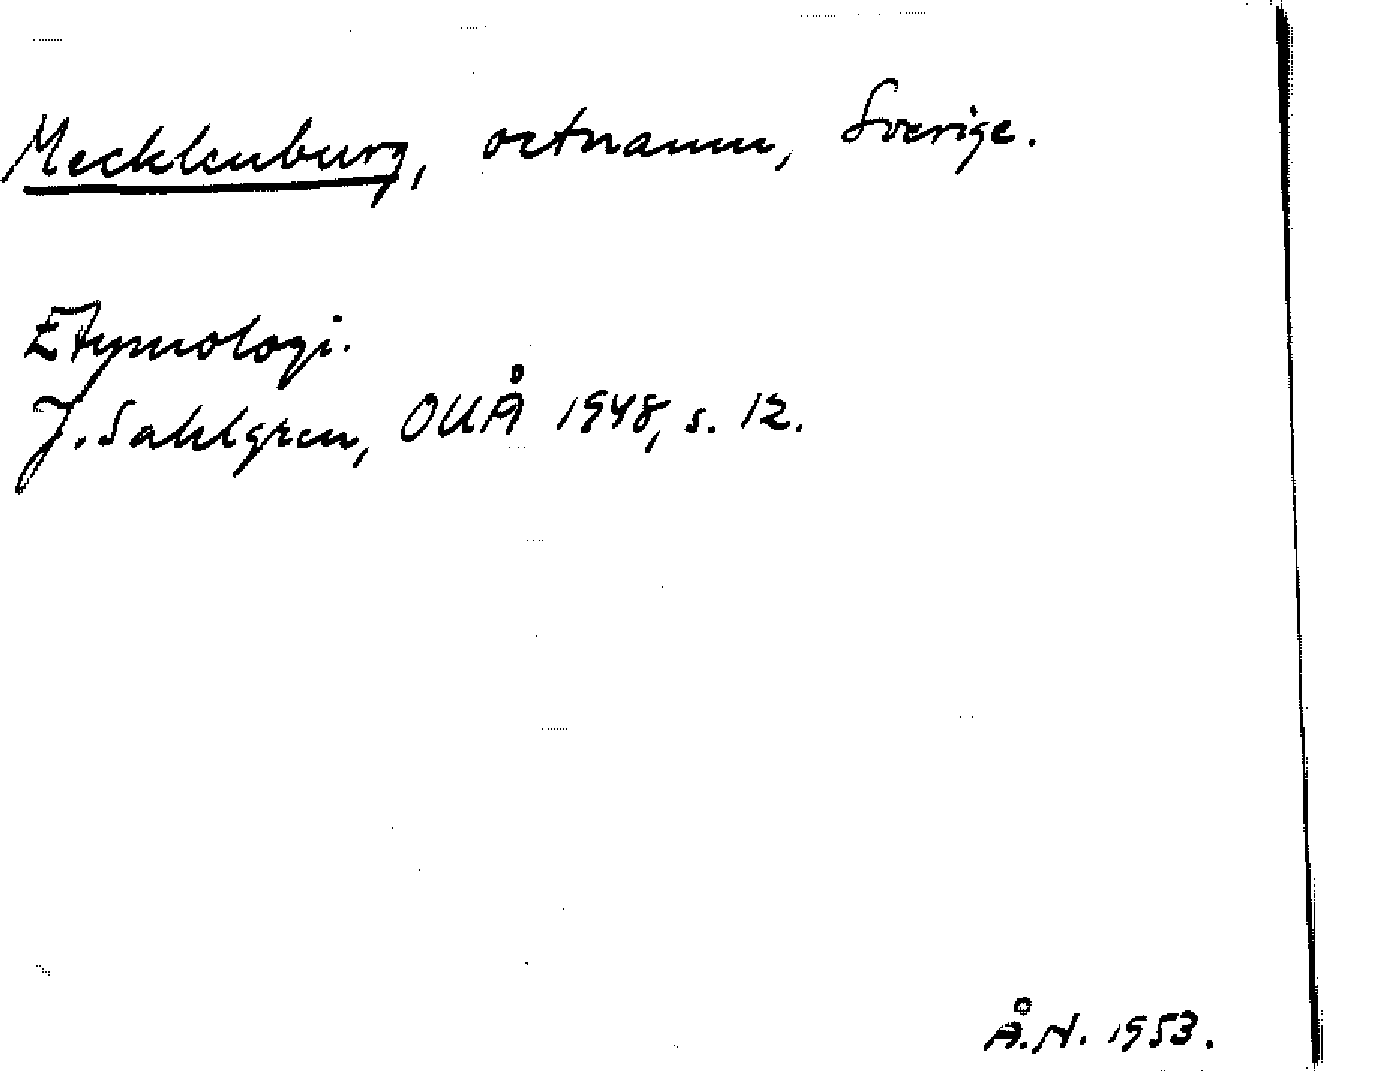 Mecklenburg, ortnamn, Sverige.
Etymologi.
J. Sahlgren, OUÅ 1948, s. 12.
Å.N. 1953.